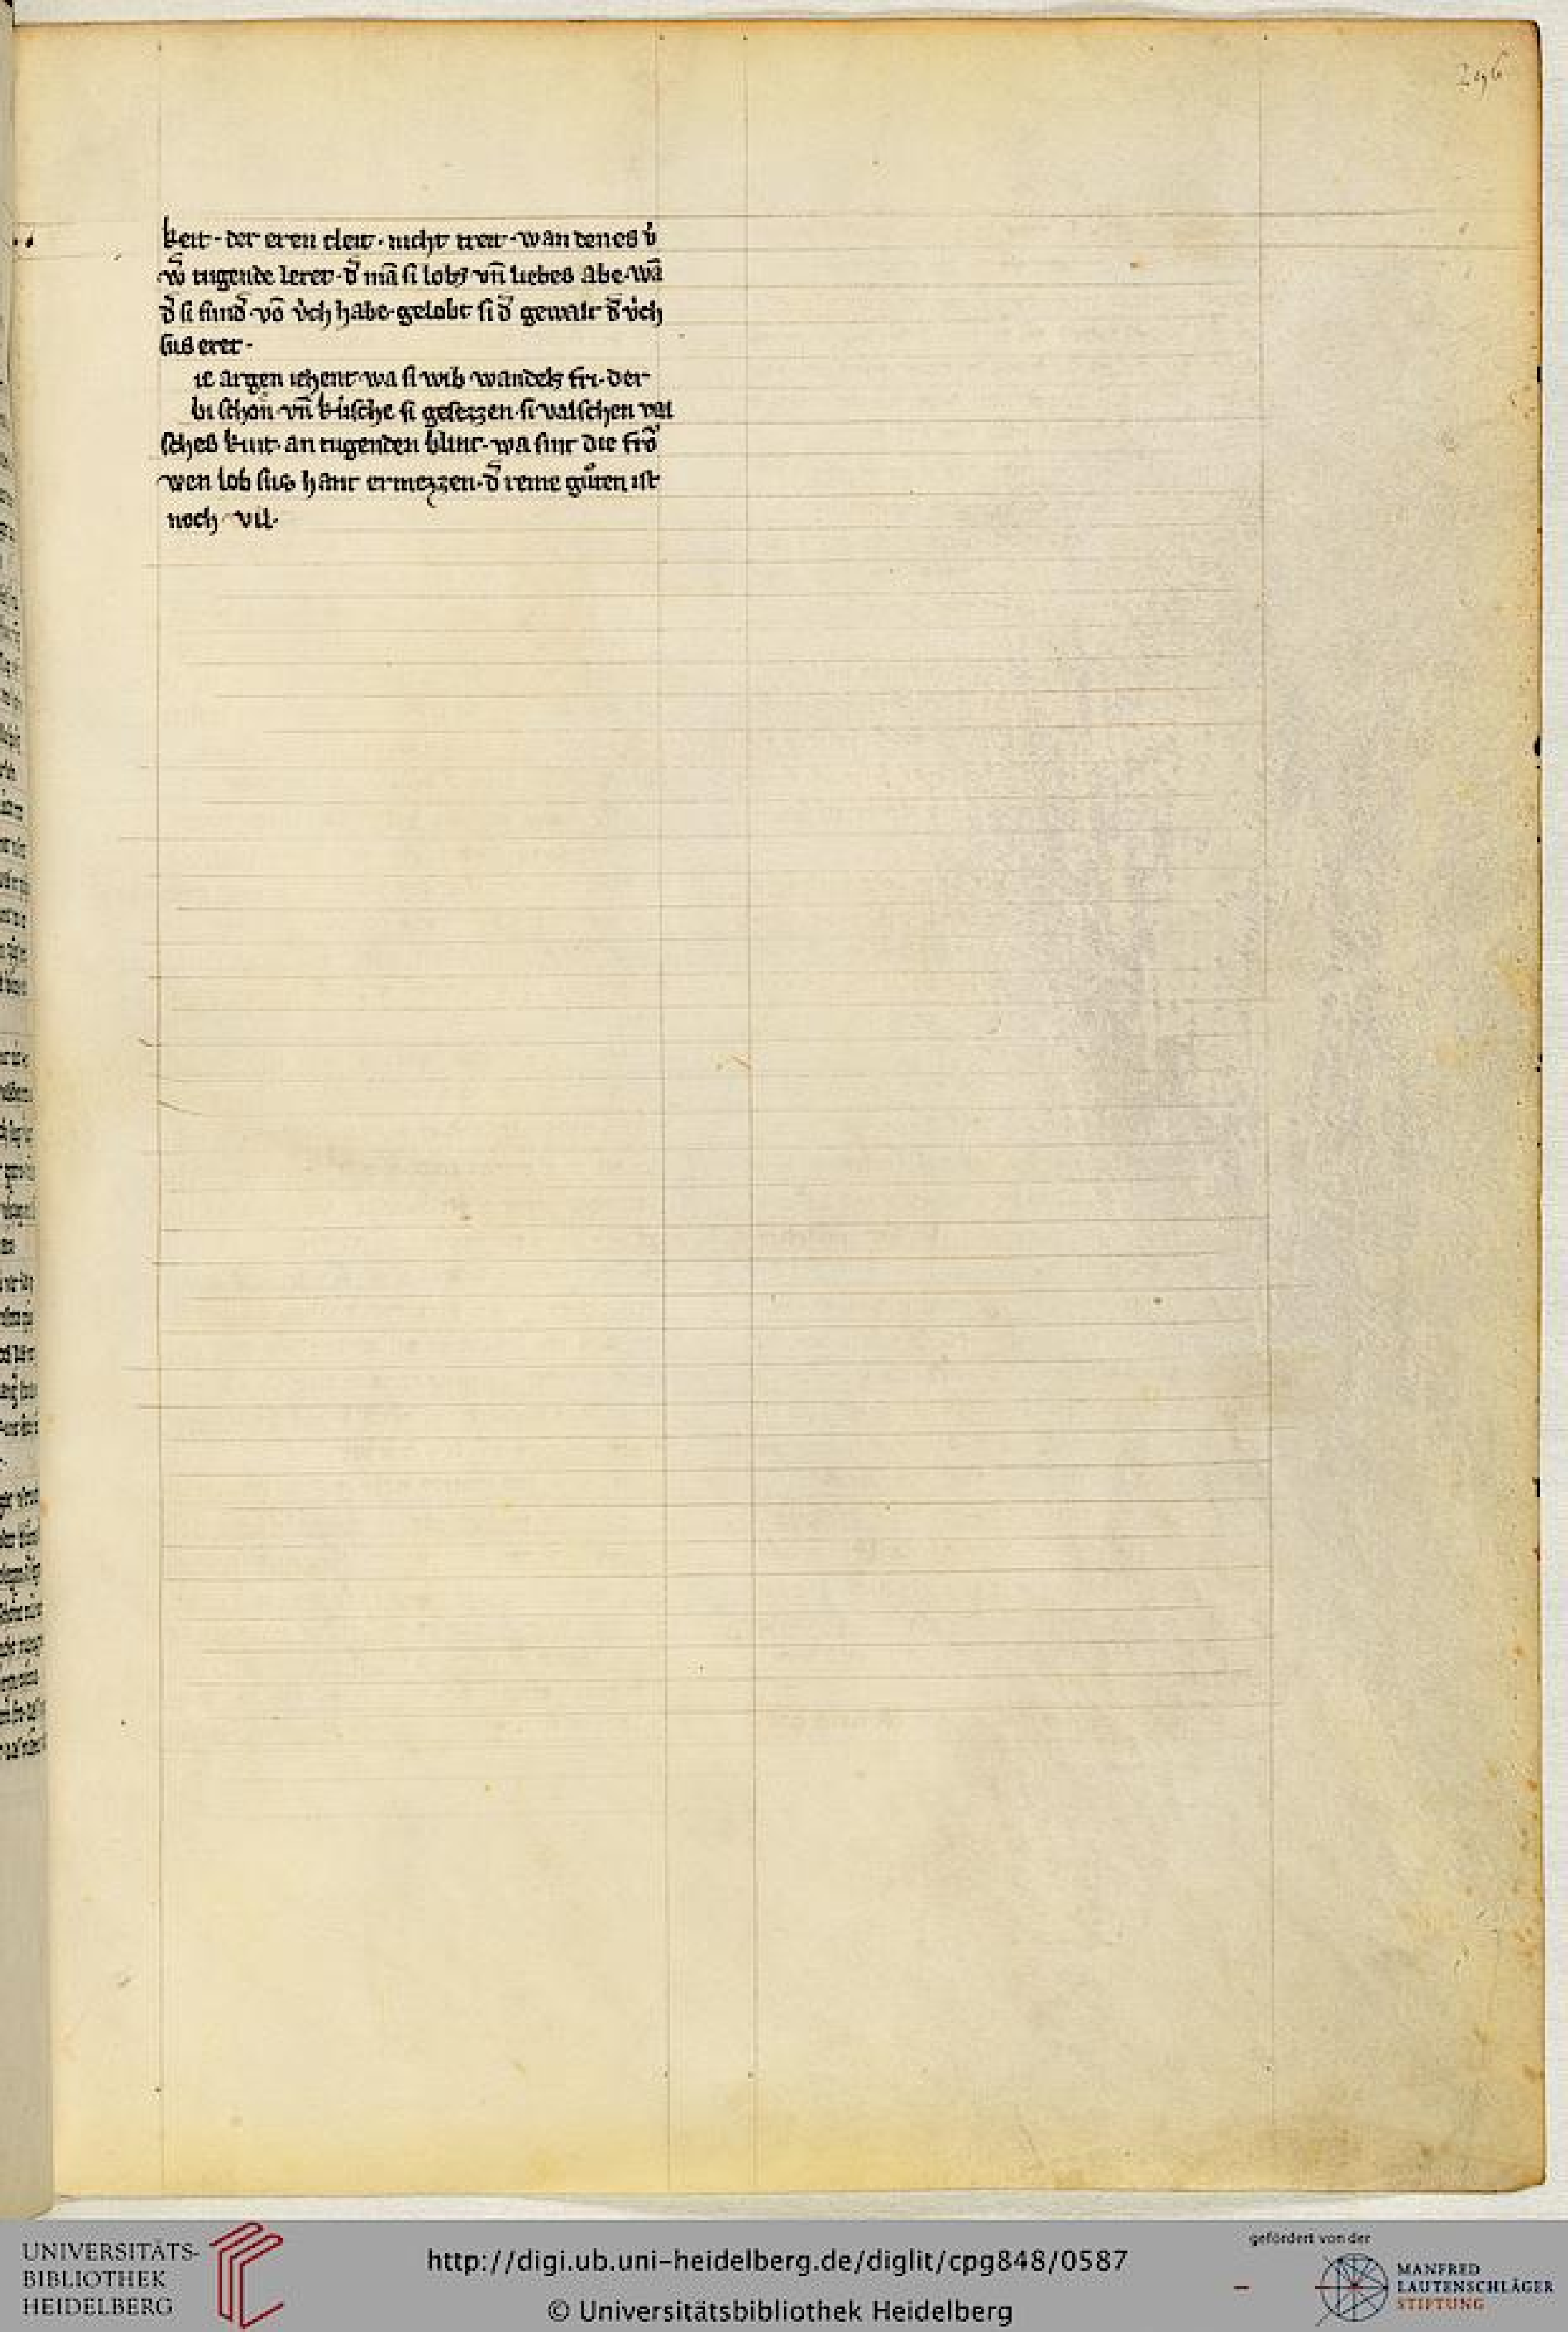 296
keit · der eren cleit · nicht treit · wan den es v̍
w̄ tugende leret · d̄ mā si lobz vn̄ liebes abe · wā
d̄ si sund̄ vō v̍ch habe · gelobt si d̄ gewalt d̄ v̍ch
sus eret ·
ie argen iehent wa si wib wandels fri · der
bi schon vn̄ kusche si gesezzen · si valschen val
sches kint · an tugenden blint · wa sint die frō
wen lob sus hant ermezzen · d̄ reine gůten ist
noch vil ·
UNIVERSITÄTS-
BIBLIOTHEK
HEIDELBERG
http://digi.ub.uni-heidelberg.de/diglit/cpg848/0587
© Universitätsbibliothek Heidelberg
gefördert von der
MANFRED
LAUTENSCHLÄGER
STIFTUNG